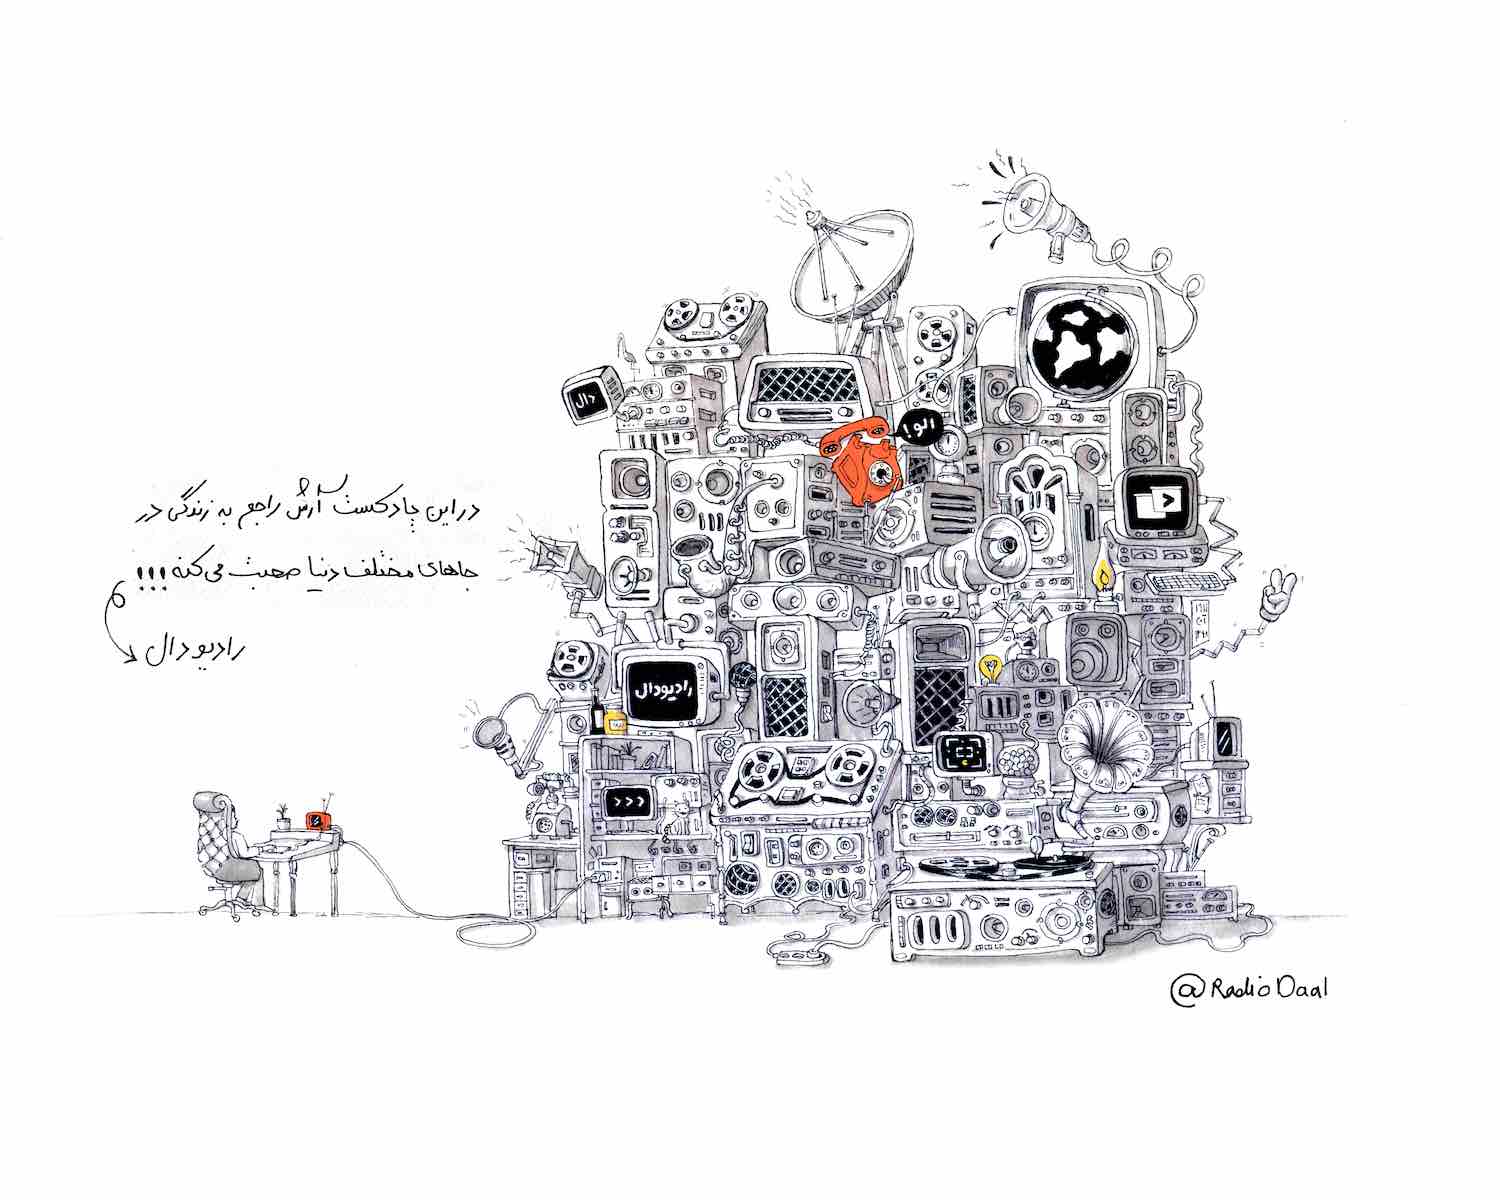 در این پادکست آرش راجع به زندگی در
جاهای مختلف دنیا صحبت می‌کنه !!!
رادیو دال
دال
الو !
رادیودال
>>>
<
@RadioDaal